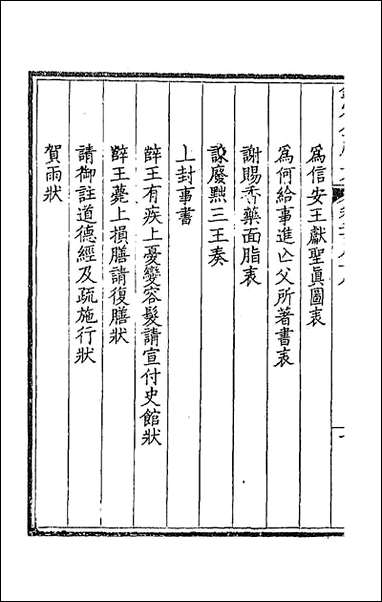 為信安王獻聖真圖表
為何給事進亡父所著書表
謝賜香藥面脂表
諫廢黜三王奏
上封事書
薛王有疾上憂變容髮請宣付史館狀
薛王薨上損膳請復膳狀
請御註道德經及疏施行狀
賀雨狀